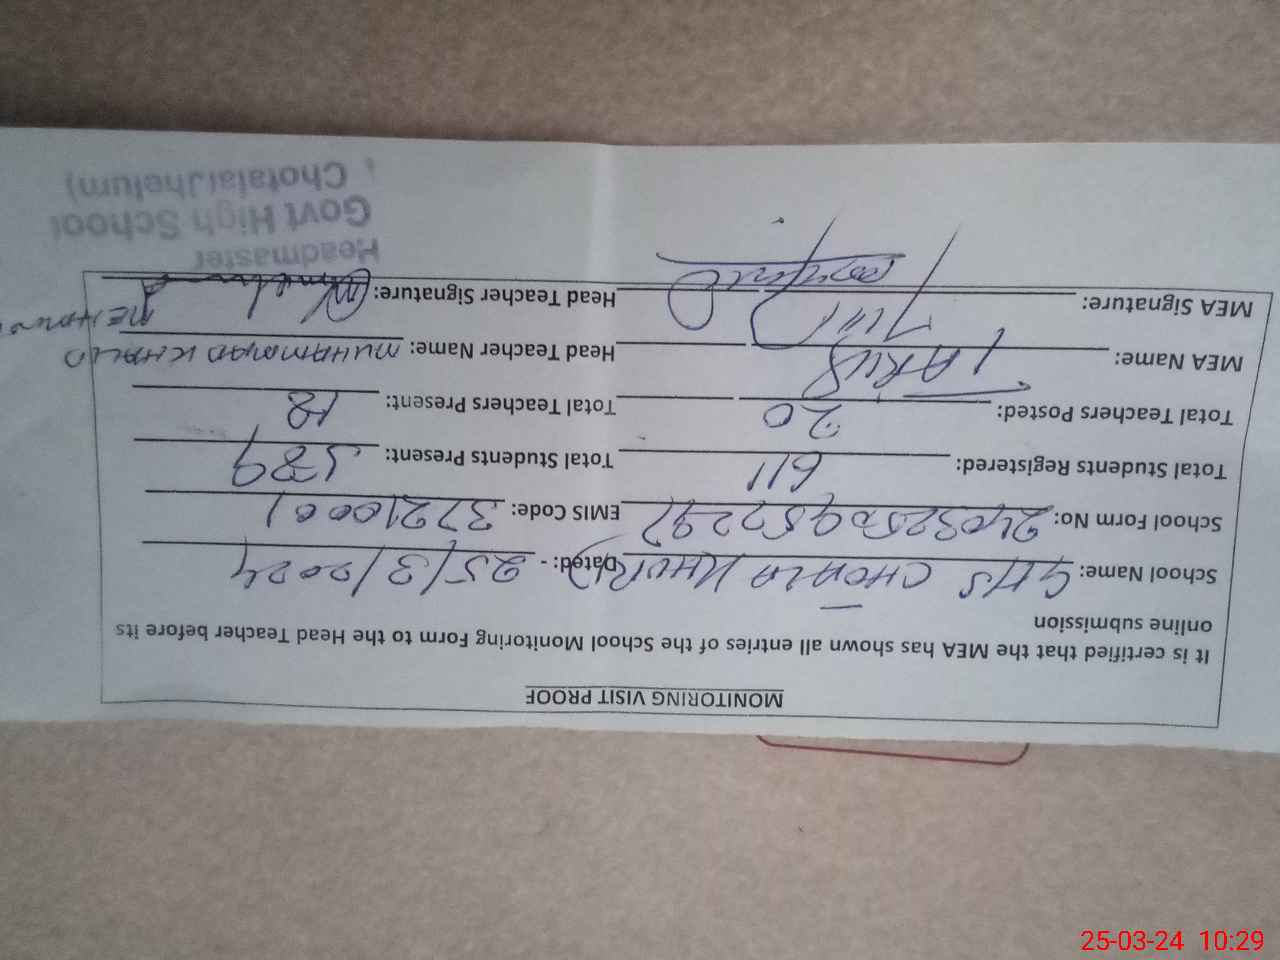 MONITORING VISIT PROOF
It is certified that the MEA has shown all entries of the School Monitoring Form to the Head Teacher before its
online submission
School Name: GHS CHOTALA Dated: - 25/3/2024
School Form No: EMIS Code: 37210001
Total Students Registered: 611 Total Students Present: 589
Total Teachers Posted: 20 Total Teachers Present: 18
MEA Name: TARIQ Head Teacher Name: MUHAMMAD KHALID
MEA Signature: Head Teacher Signature:
Headmaster
Govt High School
Chotala(Jhelum)
25-03-24 10:29